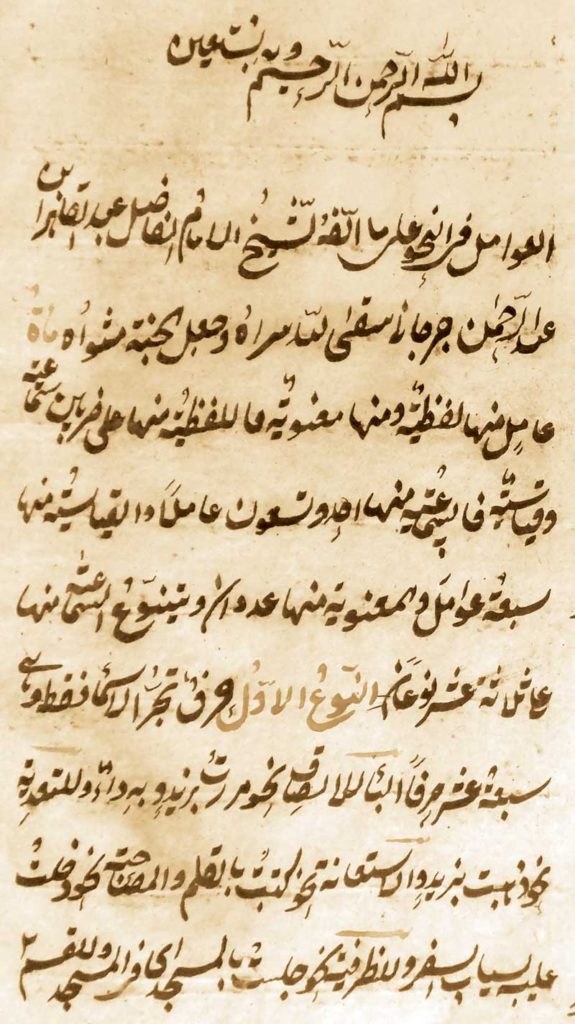 بسم الله الرحمن الرحيم وبه نستعين
العوامل في النحو على ما الّفه الشيخ الامام الفاضل عبد القاهر ابن
عبد الرحمن جرجاني سقى الله ثراه وجعل الجنة مثواه مأة
عامل منها لفظية ومنها معنوية فاللفظية منها على ضربين سماعية
وقياسية فالسماعية منها احد وتسعون عاملاً والقياسية منها
سبعة عوامل والمعنوية منها عددان ويتنوع السماعية منها
على ثلاثة عشر نوعاً النوع الاول حروف تجر الاسم فقط وهي
سبعة عشر حرفاً الباء للالصاق نحو مررت بزيد وبه داء وللتعدية
نحو ذهبت بزيد والاستعانة نحو كتبت بالقلم والمصاحبة نحو دخلت
عليه بسياب السفر وللظرفية نحو جلست بالمسجد اي في المسجد وللقسم